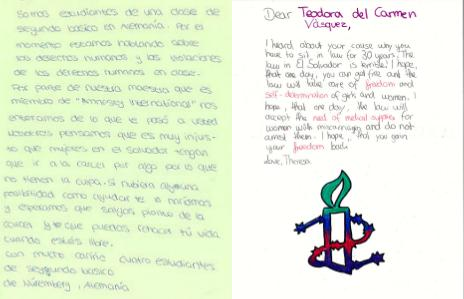 Somos estudiantes de una clase de
segundo basico en Alemania. Por el
momento estamos hablando sobre
los derechos humanos y las violaciones
de los derechos humanos en clase.
Por parte de nuestra maestra que es
miembro de "Amnesty International" nos
enteramos de lo que te pasó a usted
Nosotros pensamos que es muy injus-
to que mujeres en El Salvador tengan
que ir a la carcel por algo por lo que
no tienen la culpa. Si hubiera alguna
posibilidad como ayudarte lo haríamos
y esperamos que salgas pronto de la
carcel y que puedas rehacer tú vida
cuando estés libre.
Con mucho cariño cuatro estudiantes
de segundo basico
de Nüremberg, Alemania
Dear Teodora del Carmen
Vásquez,
I heard about your cause why you
have to sit in jail for 30 years. The
law in El Salvador is terrible! I hope,
that one day, you can get free and the
law will take care of freedom and
self-determination of girls and women. I
hope, that one day, the law will
accept the need of medical support for
women with miscarriages and do not
arrest them. I hope, that you gain
your freedom back.
Love, Theresa